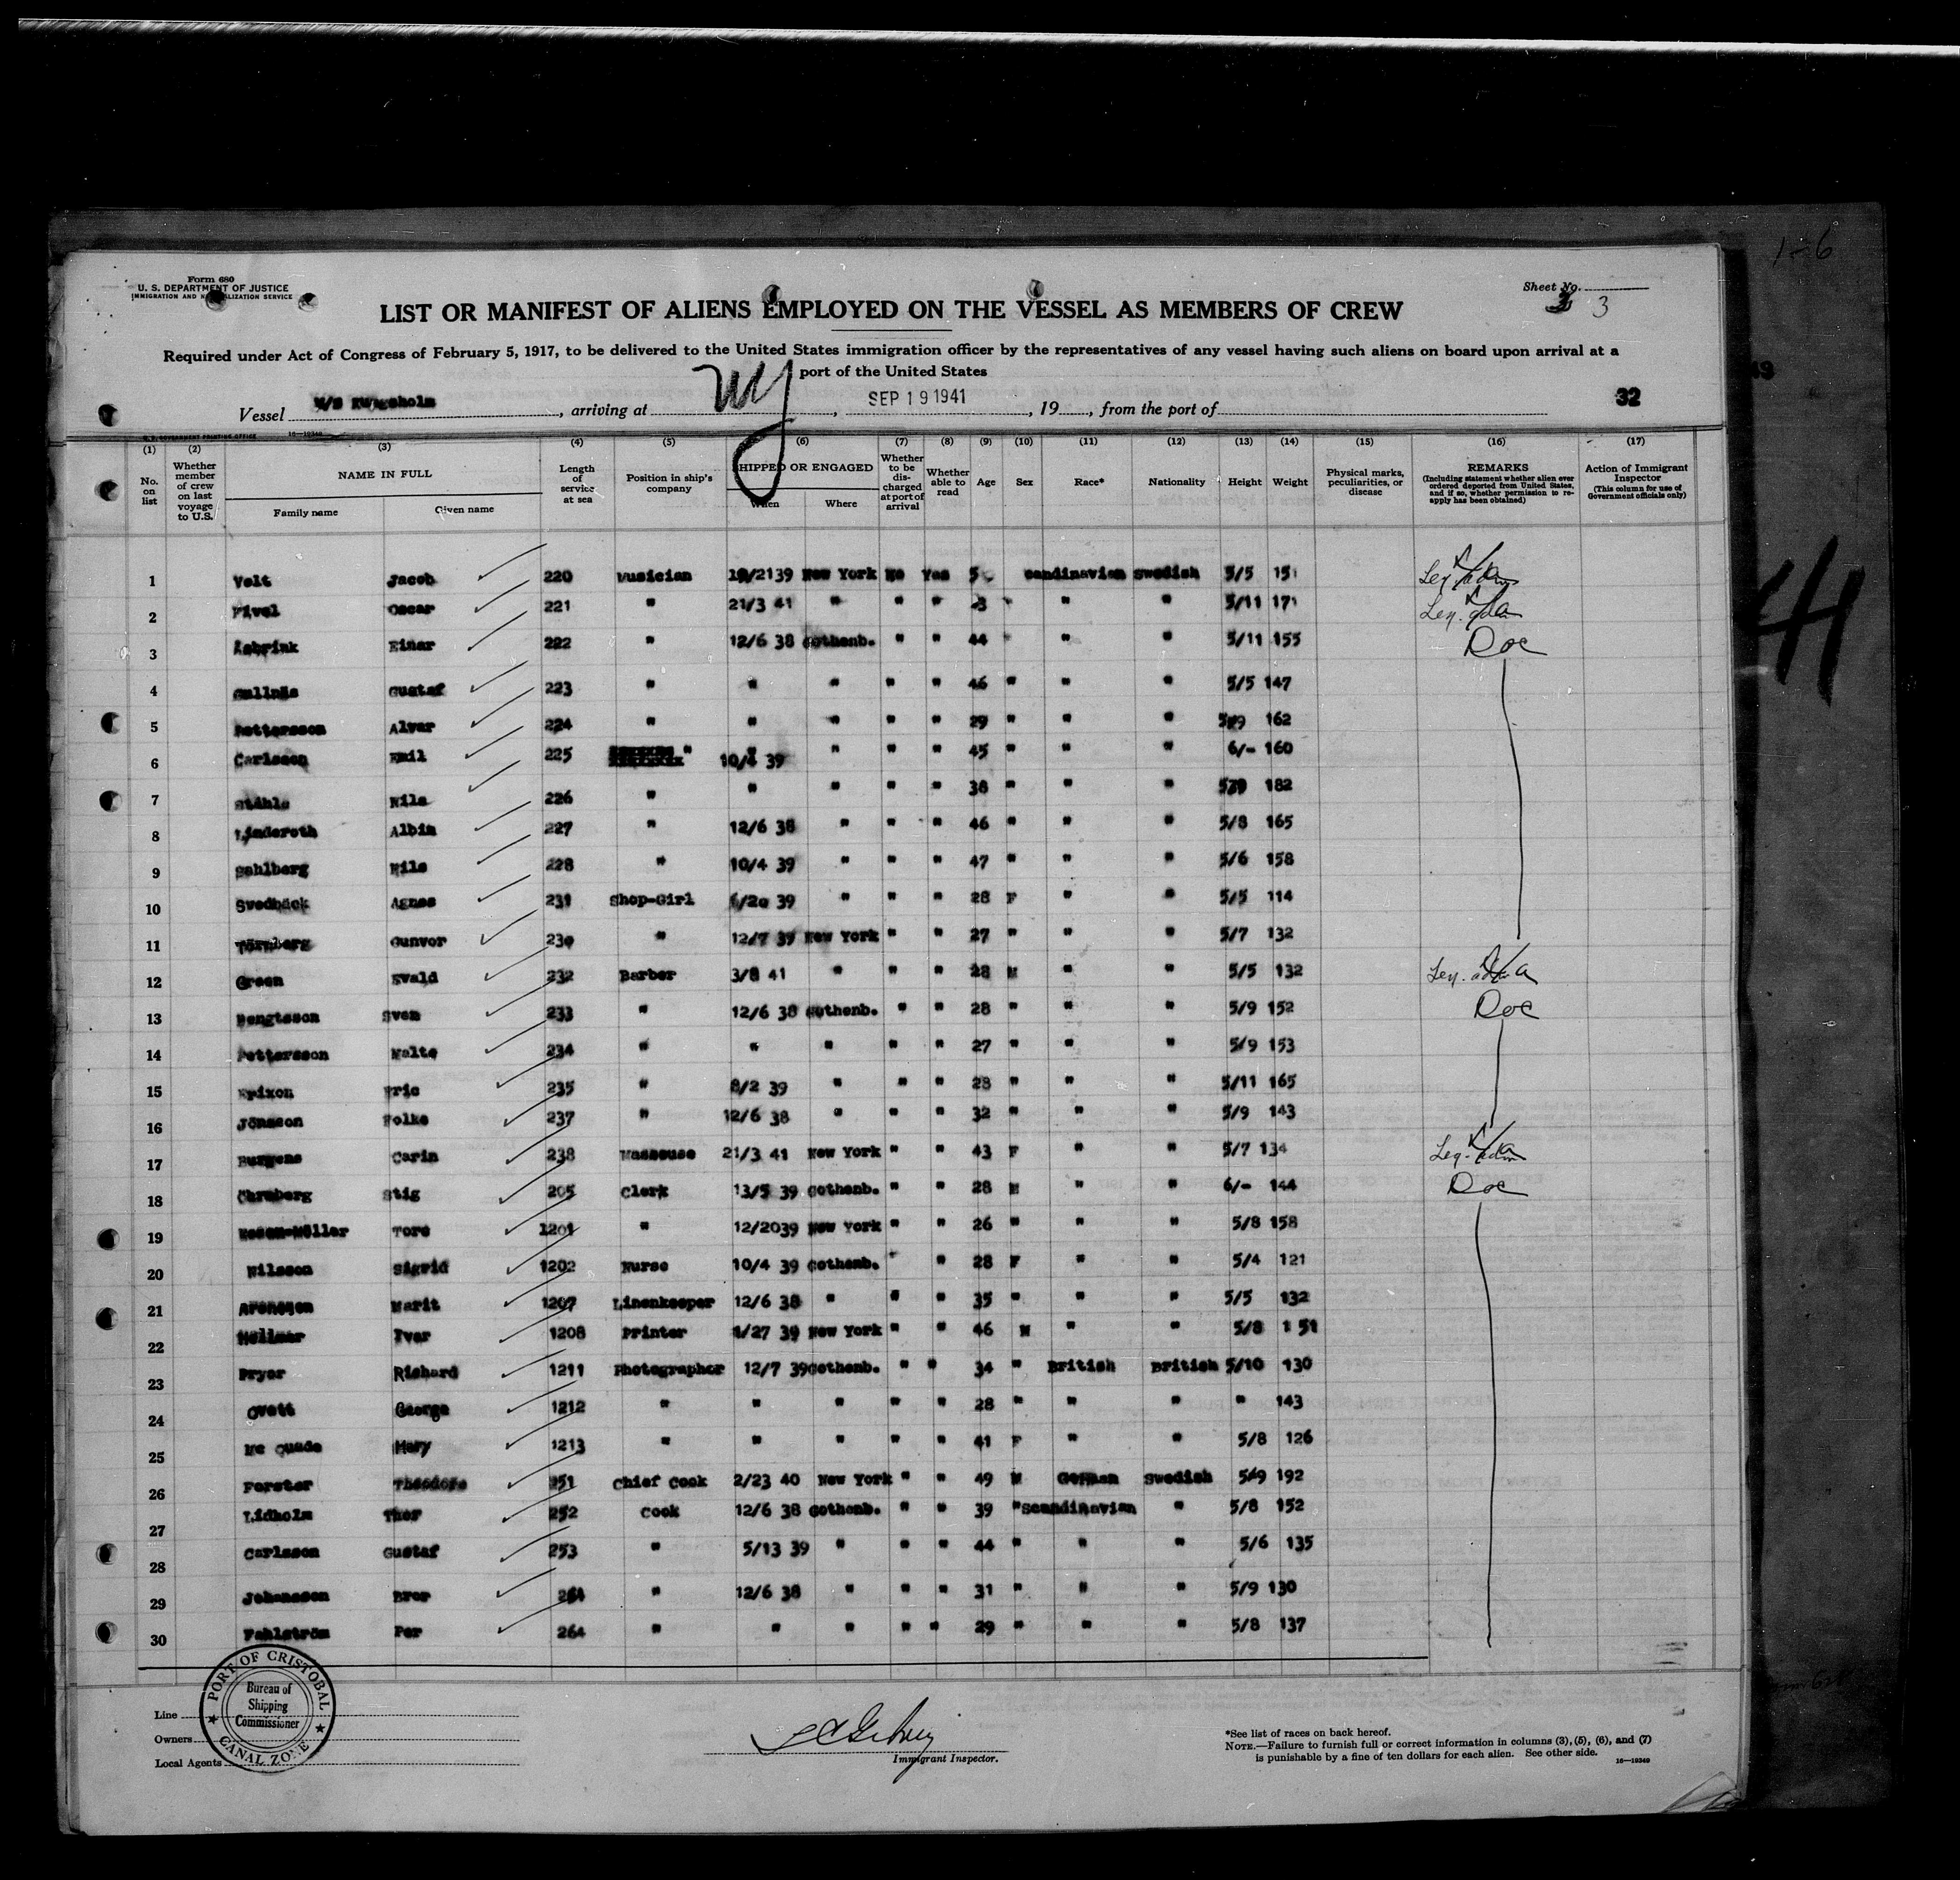 1-6
Form 680
U. S. DEPARTMENT OF JUSTICE
IMMIGRATION AND NATURALIZATION SERVICE
Sheet No.
3
LIST OR MANIFEST OF ALIENS EMPLOYED ON THE VESSEL AS MEMBERS OF CREW
Required under Act of Congress of February 5, 1917, to be delivered to the United States immigration officer by the representatives of any vessel having such aliens on board upon arrival at a
port of the United States
Vessel M/S Kungsholm, arriving at NY, SEP 19 1941, 19, from the port of
32
U. S. GOVERNMENT PRINTING OFFICE 16—19349
(1) (2) (3) (4) (5) (6) (7) (8) (9) (10) (11) (12) (13) (14) (15) (16) (17)
No. on list
Whether member of crew on last voyage to U.S.
NAME IN FULL
Family name Given name
Length of service at sea
Position in ship's company
SHIPPED OR ENGAGED
When Where
Whether to be discharged at port of arrival
Whether able to read
Age
Sex
Race*
Nationality
Height
Weight
Physical marks, peculiarities, or disease
REMARKS
(Including statement whether alien ever ordered deported from United States, and if so, whether permission to reapply has been obtained)
Action of Immigrant Inspector
(This column for use of Government officials only)
1 Jacob 220 Musician New York No Yes Scandinavian Swedish 5/5
2 Oscar 221 " 21/3 41 " " " " " 5/11 171
3 Åsbrink Einar 222 " 12/6 38 Gothenb. " " 44 " " 5/11 155 Doc
4 Gullnäs Gustaf 223 " " " " " 46 " " " 5/5 147
5 Pettersson Alvar 224 " " " " " 29 " " " 162
6 Carlsson Emil 225 " 10/4 39 " " " 45 " " " 6/- 160
7 Ståhle Nils 226 " " " " " 38 " " " 182
8 Linderoth Albin 227 " 12/6 38 " " " 46 " " " 5/8 165
9 Dahlberg Nils 228 " 10/4 39 " " " 47 " " " 5/6 158
10 Svedbäck Agnes 231 Shop-Girl 39 " " " 28 F " " 5/5 114
11 Törnberg Gunvor 230 " 12/7 39 New York " " 27 " " " 5/7 132
12 Green Evald 232 Barber 3/8 41 " " " 28 M " " 5/5 132
13 Bengtsson Sven 233 " 12/6 38 Gothenb. " " 28 " " " 5/9 152 Doc
14 Pettersson Malte 234 " " " " " 27 " " " 5/9 153
15 Erixon Eric 235 " 8/2 39 " " " 28 " " " 5/11 165
16 Jönsson Folke 237 " 12/6 38 " " " 32 " " " 5/9 143
17 Carin 238 Masseuse 21/3 41 New York " " 43 F " " 5/7 134
18 Öhrnberg Stig 205 Clerk 13/5 39 Gothenb. " " 28 M " " 6/- 144 Doc
19 Rosen-Möller Tore 1201 " 12/2039 New York " " 26 " " " 5/8 158
20 Nilsson Sigrid 1202 Nurse 10/4 39 Gothenb. " " 28 F " " 5/4 121
21 Aronsson Marit 1207 Linenkeeper 12/6 38 " " " 35 " " " 5/5 132
22 Ivar 1208 Printer 1/27 39 New York " " 46 M " " 5/8 151
23 Pryer Richard 1211 Photographer 12/7 39 Gothenb. " " 34 " British British 5/10 130
24 Ovett George 1212 " " " " " 28 " " " " 143
25 Mc Quade Mary 1213 " " " " " 41 F " " 5/8 126
26 Forster Theodore 251 Chief Cook 2/23 40 New York " " 49 M German Swedish 5/9 192
27 Lidholm Thor 252 Cook 12/6 38 Gothenb. " " 39 " Scandinavian " 5/8 152
28 Carlsson Gustaf 253 " 5/13 39 " " " 44 " " " 5/6 135
29 Johansson Bror 264 " 12/6 38 " " " 31 " " " 5/9 130
30 Fahlström Per 264 " " " " " 29 " " " 5/8 137
PORT OF CRISTOBAL
Bureau of
Shipping
Commissioner
CANAL ZONE
Line
Owners
Local Agents
Immigrant Inspector.
*See list of races on back hereof.
NOTE.—Failure to furnish full or correct information in columns (3), (5), (6), and (7)
is punishable by a fine of ten dollars for each alien. See other side.
16—19349